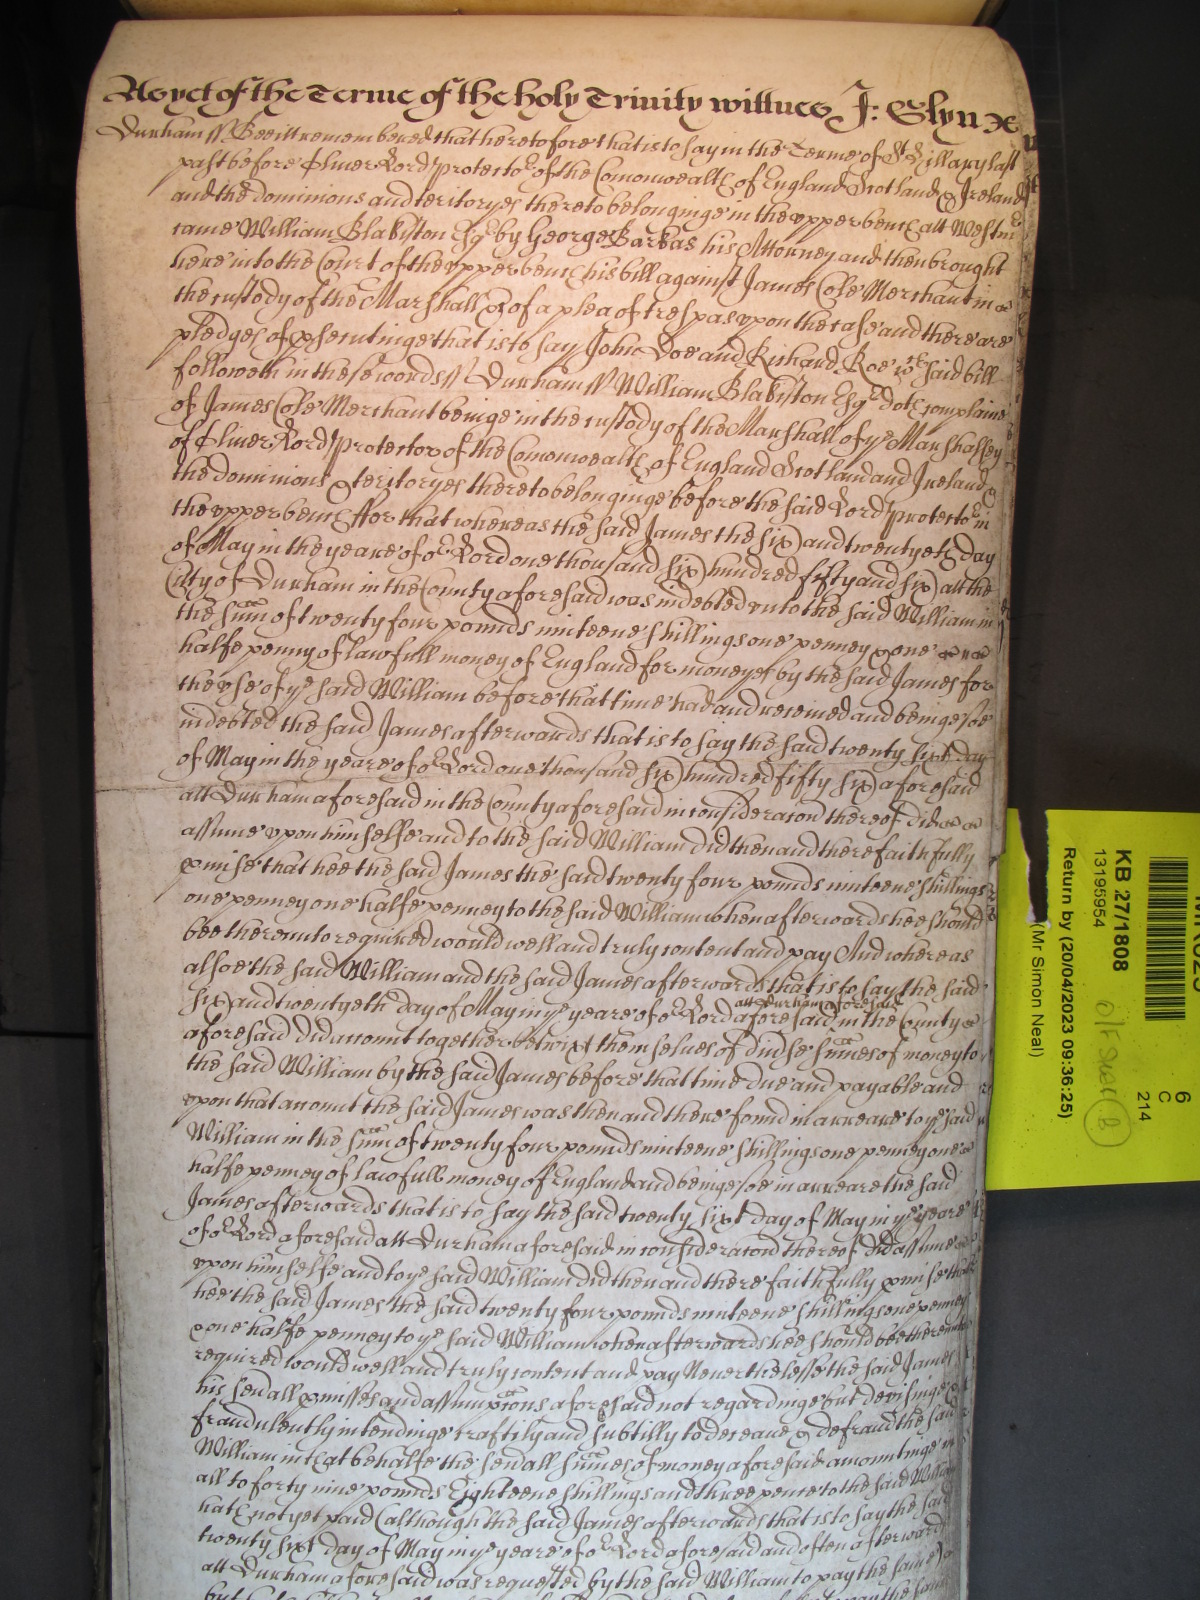 As yet of the Terme of the holy Trinity wittnes J: Glyn
Durham ss Bee itt remembered that heretofore that is to say in the Terme of St Hillary last
past before Oliver Lord Protector of the Comonwealth of England Scotland & Ireland
and the dominions and teritoryes thereto belonginge in the vpper bench att Westmr
came William Blakiston Esqr by George Barkas his Attorney and then brought
here into the Court of the vpper bench his bill against James Cole Merchant in
the custody of the Marshall &c of a plea of trespas vpon the case and there are
pledges of prosecutinge that is to say John Doe and Richard Roe wch said bill
followeth in these words ss Durham ss William Blakiston Esqr doth complaine
of James Cole Merchant beinge in the custody of the Marshall of ye Marshalsey
of Oliver Lord Protector of the Comonwealth of England Scotland and Ireland &
the dominions & teritoryes thereto belonginge before the said Lord Protector in
the vpper bench ffor that whereas the said James the six and twentyeth day
of May in the yeare of or Lord one thousand six hundred fifty and six att the
Citty of Durham in the County aforesaid was indebted vnto the said William in
the sume of twenty four pounds nineteene shillings one penney & one
halfe penny of lawfull money of England for moneyes by the said James for
the vse of ye said William before that time had and receined and beinge soe
indebted the said James afterwards that is to say the said twenty sixt day
of May in the yeare of or Lord one thousand six hundred fifty six aforesaid
att Durham aforesaid in the County aforesaid in consideracon thereof did
assume vpon himselfe and to the said William did then and there faithfully
promise that hee the said James the said twenty four pounds nineteene shillings
one penney one halfe penney to the said William when afterwards hee should
bee therevnto required would well and truly content and pay And whereas
alsoe the said William and the said James afterwards that is to say the said
six and twentyeth day of May in ye yeare of or Lord aforesaid att Durham aforesaid in the County
aforesaid did accomt together betwixt themselues of diuerse sumes of money to
the said William by the said James before that time due and payable and
vpon that accomt the said James was then and there found in arreare to ye said
William in the sume of twenty four pounds nineteene shillings one penney one
halfe penney of lawfull money of England and beinge soe in arreare the said
James afterwards that is to say the said twenty sixt day of May in ye yeare
of or Lord aforesaid att Durham aforesaid in consideracon thereof did assume
vpon himselfe and to ye said William did then and there faithfully promise that
hee the said James the said twenty four pounds nineteene shillings one penney
& one halfe penney to ye said William when afterwards hee should bee therevnto
required would well and truly content and pay Neverthelesse the said James
his seuall promisses and assumpcions aforesaid not regardinge but devisinge &
fraudulently intendinge craftily and subtilly to deceaue & defraud the said
William in that behalfe the seuall sumes of money aforesaid amountinge in
all to forty nine pounds Eighteene shillings and three pence to the said William
hath not yet paid (although the said James afterwards that is to say the said
twenty sixt day of May in ye yeare of or Lord aforesaid and often afterwards
att Durham aforesaid was requested by the said William to pay the same)
KB 27/1808
13195954
Return by (20/04/2023 09:36:25)
(Mr Simon Neal)
6
C
214